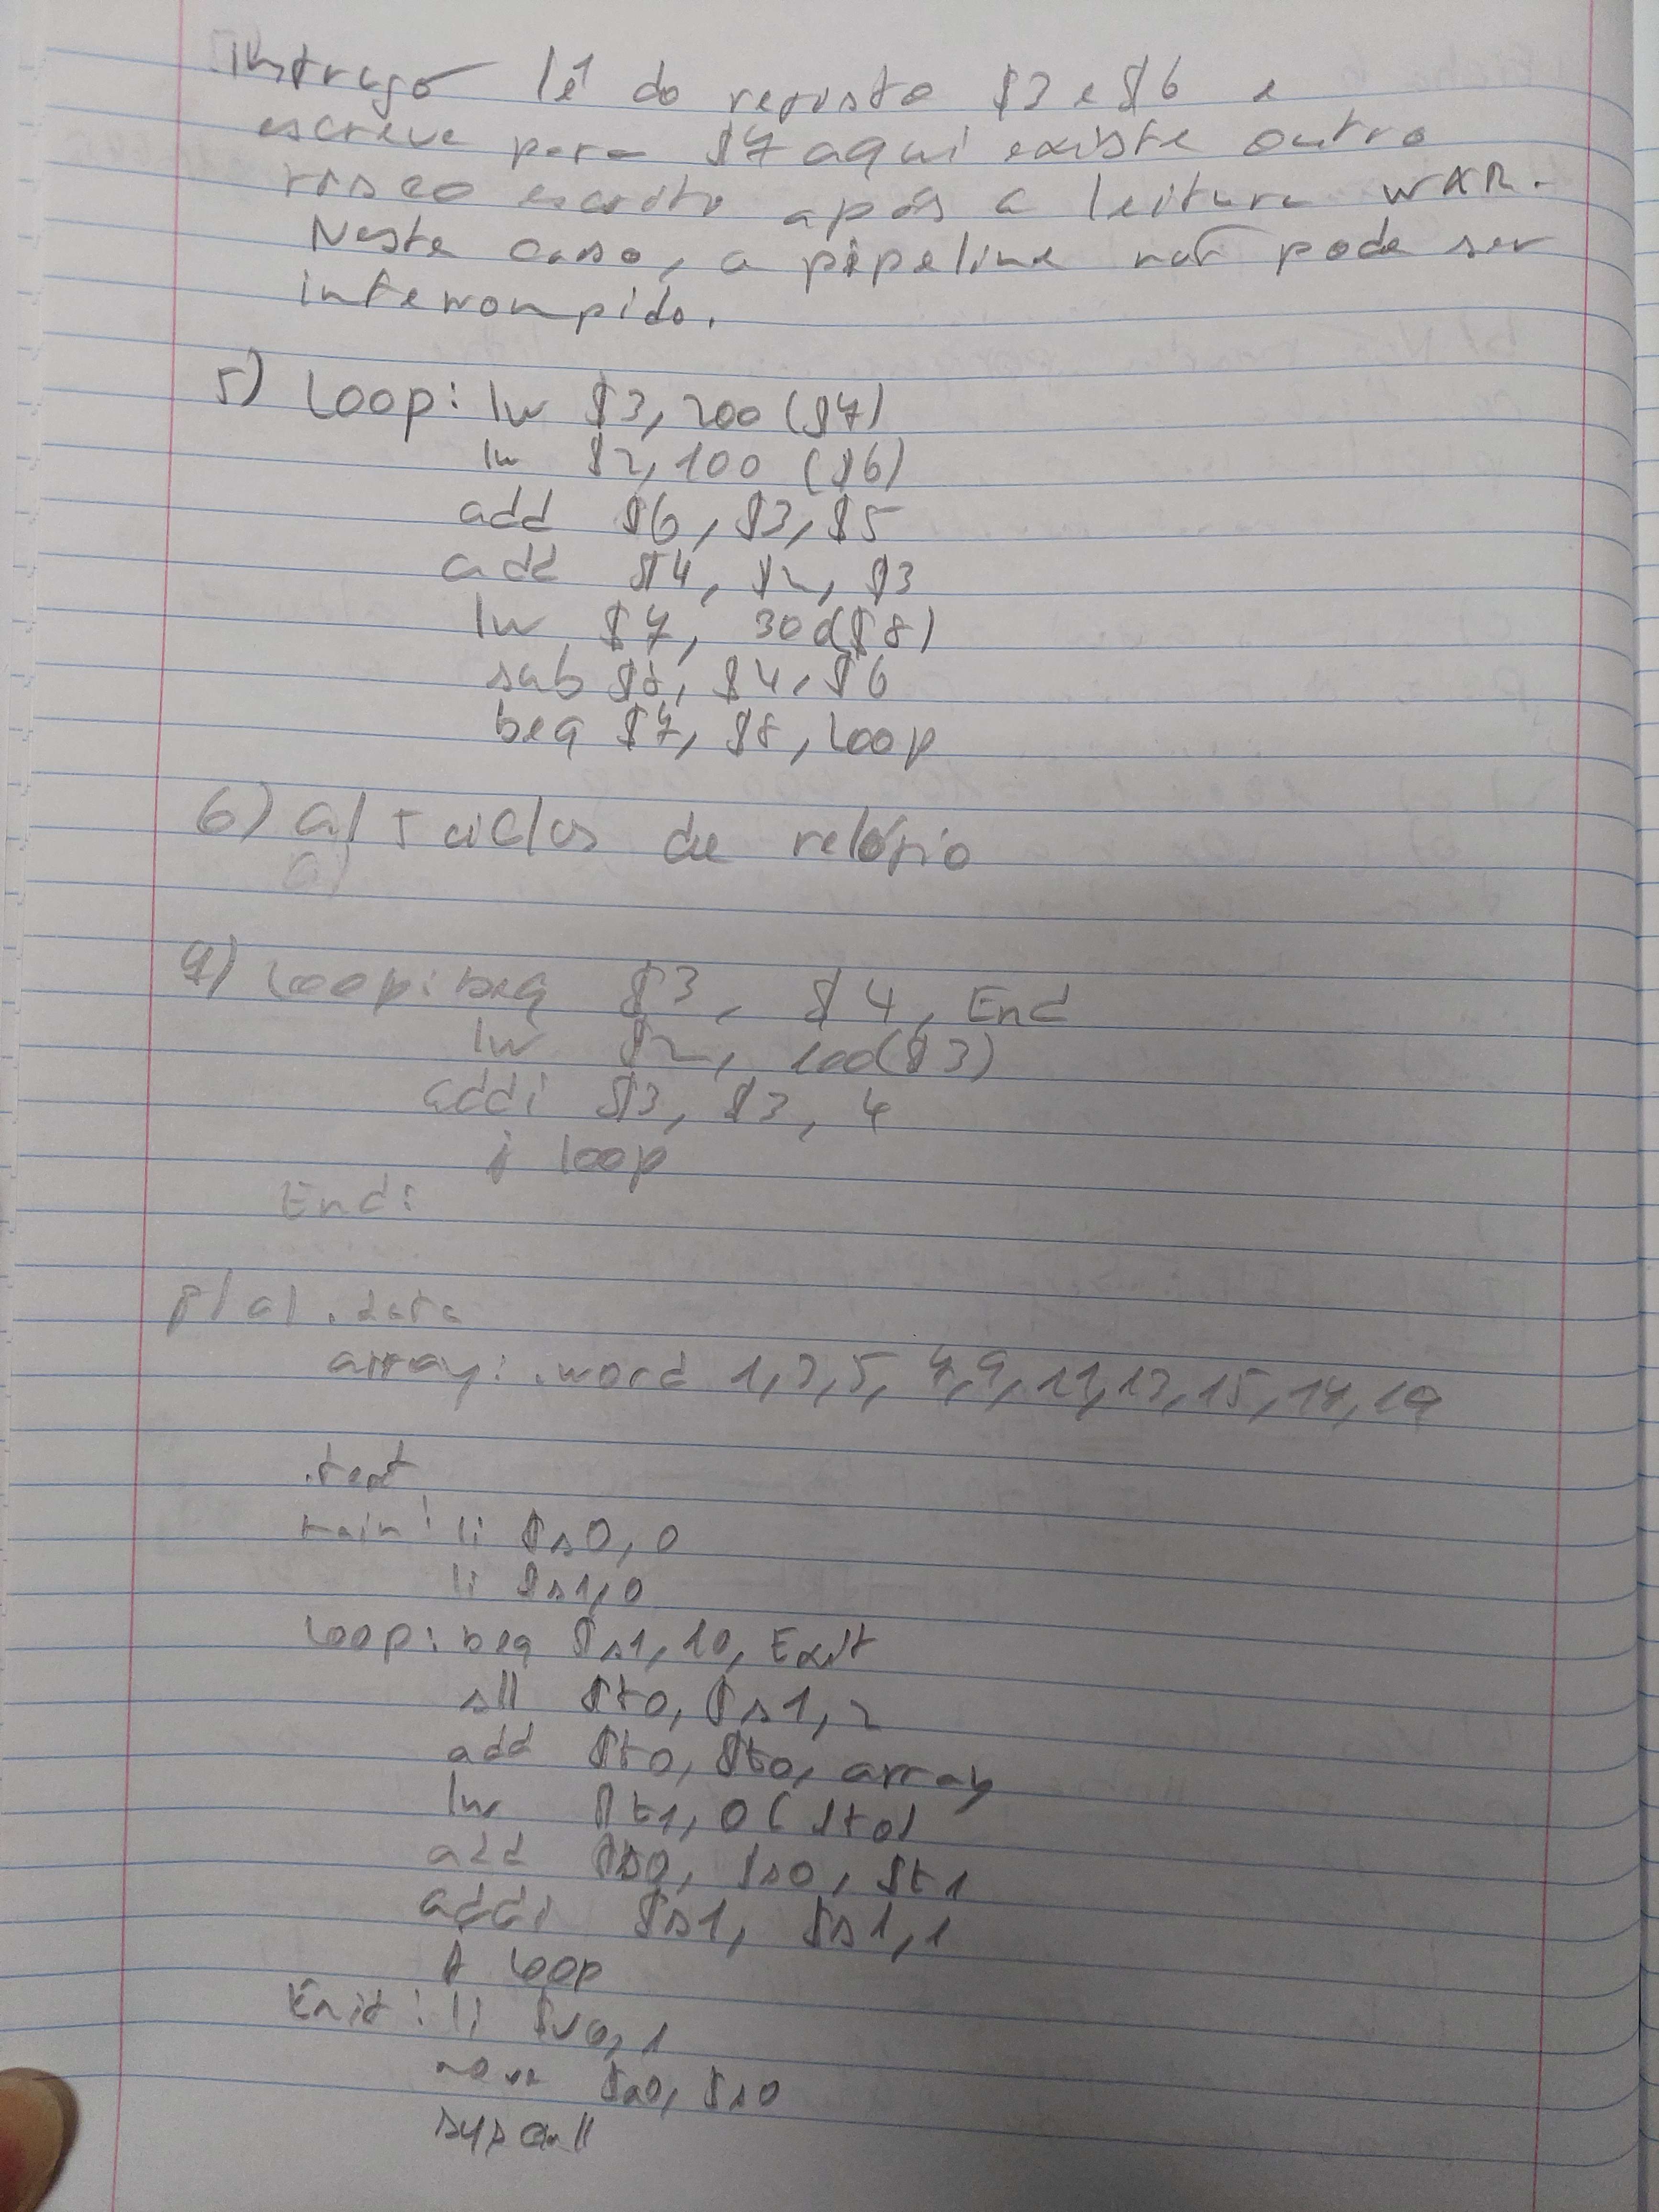 Instrução lê do registo $3 e $6 e
escreve para $7 aqui existe outro
risco escrita após a leitura WAR.
Neste caso, a pipeline não pode ser
interrompido.
5) Loop: lw $3, 200 ($7)
lw $2, 100 ($6)
add $6, $3, $5
add $4, $2, $3
lw $7, 300($8)
sub $8, $4, $6
beq $7, $8, Loop
6) a) 5 ciclos de relógio
a)
7) Loop: beq $3, $4, End
lw $2, 100($3)
addi $3, $3, 4
j loop
End:
8) a) .data
array: .word 1,3,5,7,9,11,13,15,17,19
.text
main: li $s0, 0
li $s1, 0
Loop: beq $s1, 10, Exit
sll $t0, $s1, 2
add $t0, $t0, array
lw $t1, 0($t0)
add $s0, $s0, $t1
addi $s1, $s1, 1
j Loop
Exit: li $v0, 1
move $a0, $s0
syscall